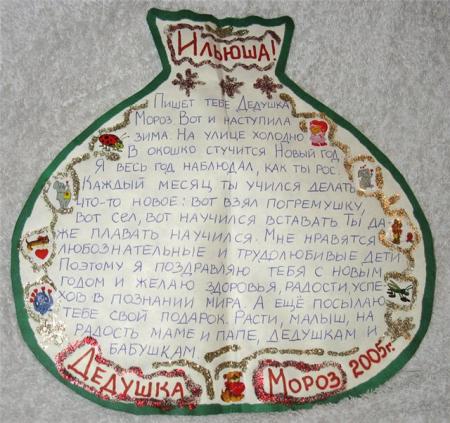 Ильюша!
Пишет тебе Дедушка
Мороз. Вот и наступила
зима. На улице холодно
В окошко стучится Новый год.
Я весь год наблюдал, как ты рос.
Каждый месяц ты учился делать
что-то новое: вот взял погремушку,
вот сел, вот научился вставать. Ты да-
же плавать научился. Мне нравятся
любознательные и трудолюбивые дети
Поэтому я поздравляю тебя с новым
годом и желаю здоровья, радости, успе-
хов в познании мира. А ещё посылаю
тебе свой подарок. Расти, малыш, на
радость маме и папе, дедушкам и
бабушкам.
Дедушка Мороз 2005г.